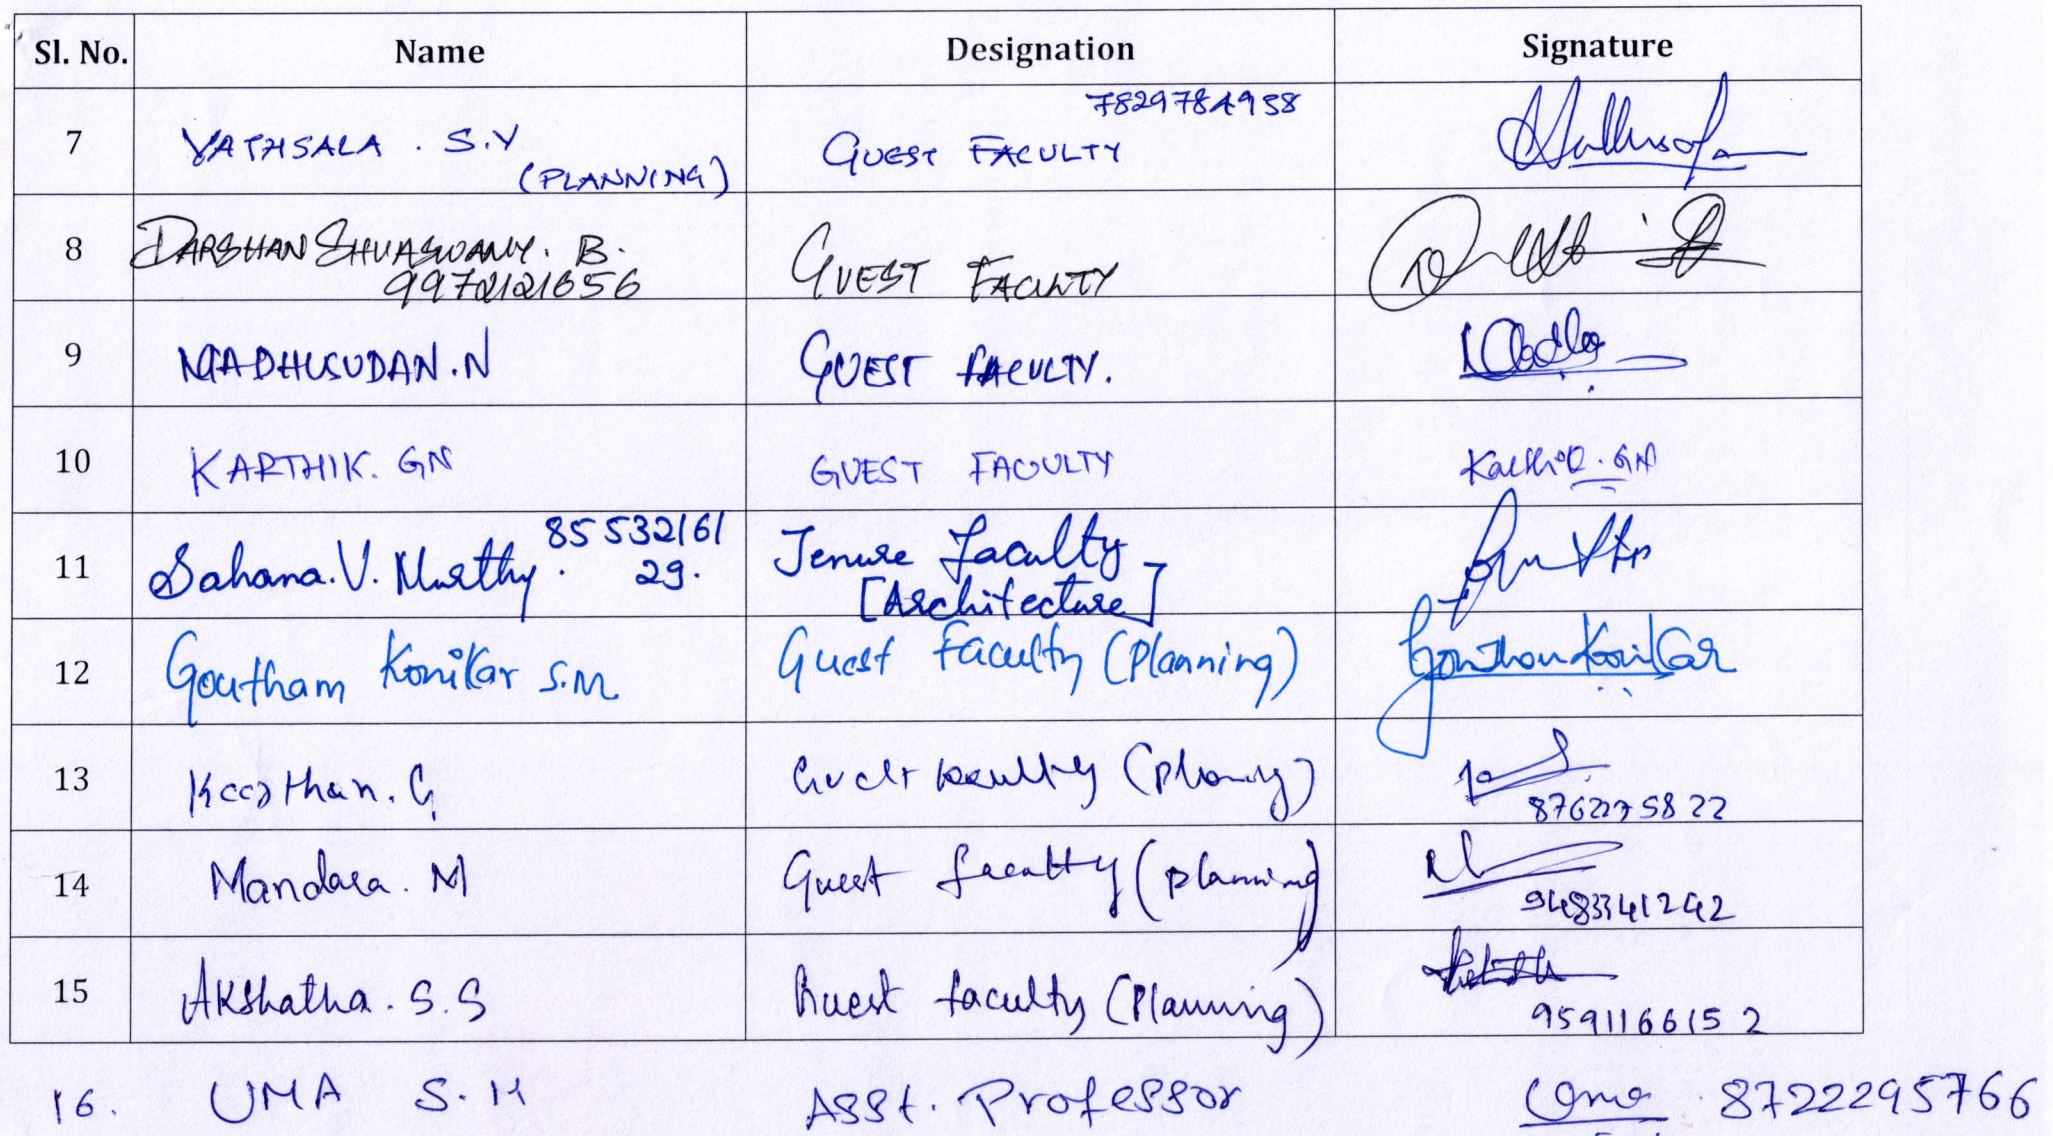 Sl. No. Name Designation Signature
7829784958
7 VATHSALA . S.V GUEST FACULTY
(PLANNING)
8 DARSHAN SHIVASWAMY. B. GUEST FACULTY
9972121656
9 MADHUSUDAN.N GUEST FACULTY.
10 KARTHIK. GN GUEST FACULTY Karthik. GN
85532161
11 Sahana.V. Murthy. 29. Tenure Faculty
[Architecture]
12 Goutham Konikar S.M. Guest Faculty (Planning) Goutham Konikar
13 Keerthan. G Guest faculty (Planning)
8762275822
14 Mandara. M Guest faculty (planning)
9483341242
15 Akshatha. S.S Guest faculty (Planning)
9591166152
16. UMA S. M Asst. Professor Uma 8722295766